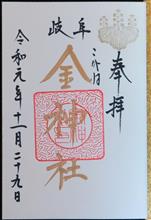 奉拝
岐阜
こがね
金神社
令和元年十一月二十九日